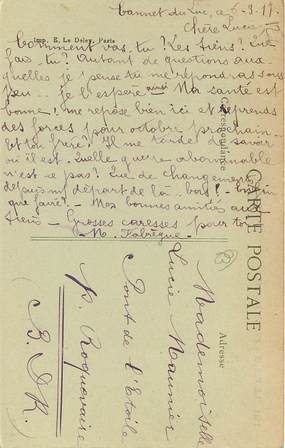 Cannet du Luc, ce 6-9-17
Chère Lucie
Imp. E. Le Deley, Paris
Comment vas-tu? Les tiens? Que
fais-tu? Autant de questions aux-
quelles je pense tu me répondras sous
peu. Je l'espère ainsi Ma santé est
bonne, me repose bien ici et reprends
des forces pour octobre prochain.
Et ton frère? Il me tarde de savoir
où il est. Quelle guerre abominable
n'est-ce pas? Que de changements
depuis mon départ de la
que faire! - Mes bonnes amitiés aux
tiens - Grosses caresses pour toi
M. Fabrègue
Correspondance
CARTE POSTALE
Adresse
Mademoiselle
Lucie Maunier
Pont de l'Etoile
p. Roquevaire
(B. D R.)